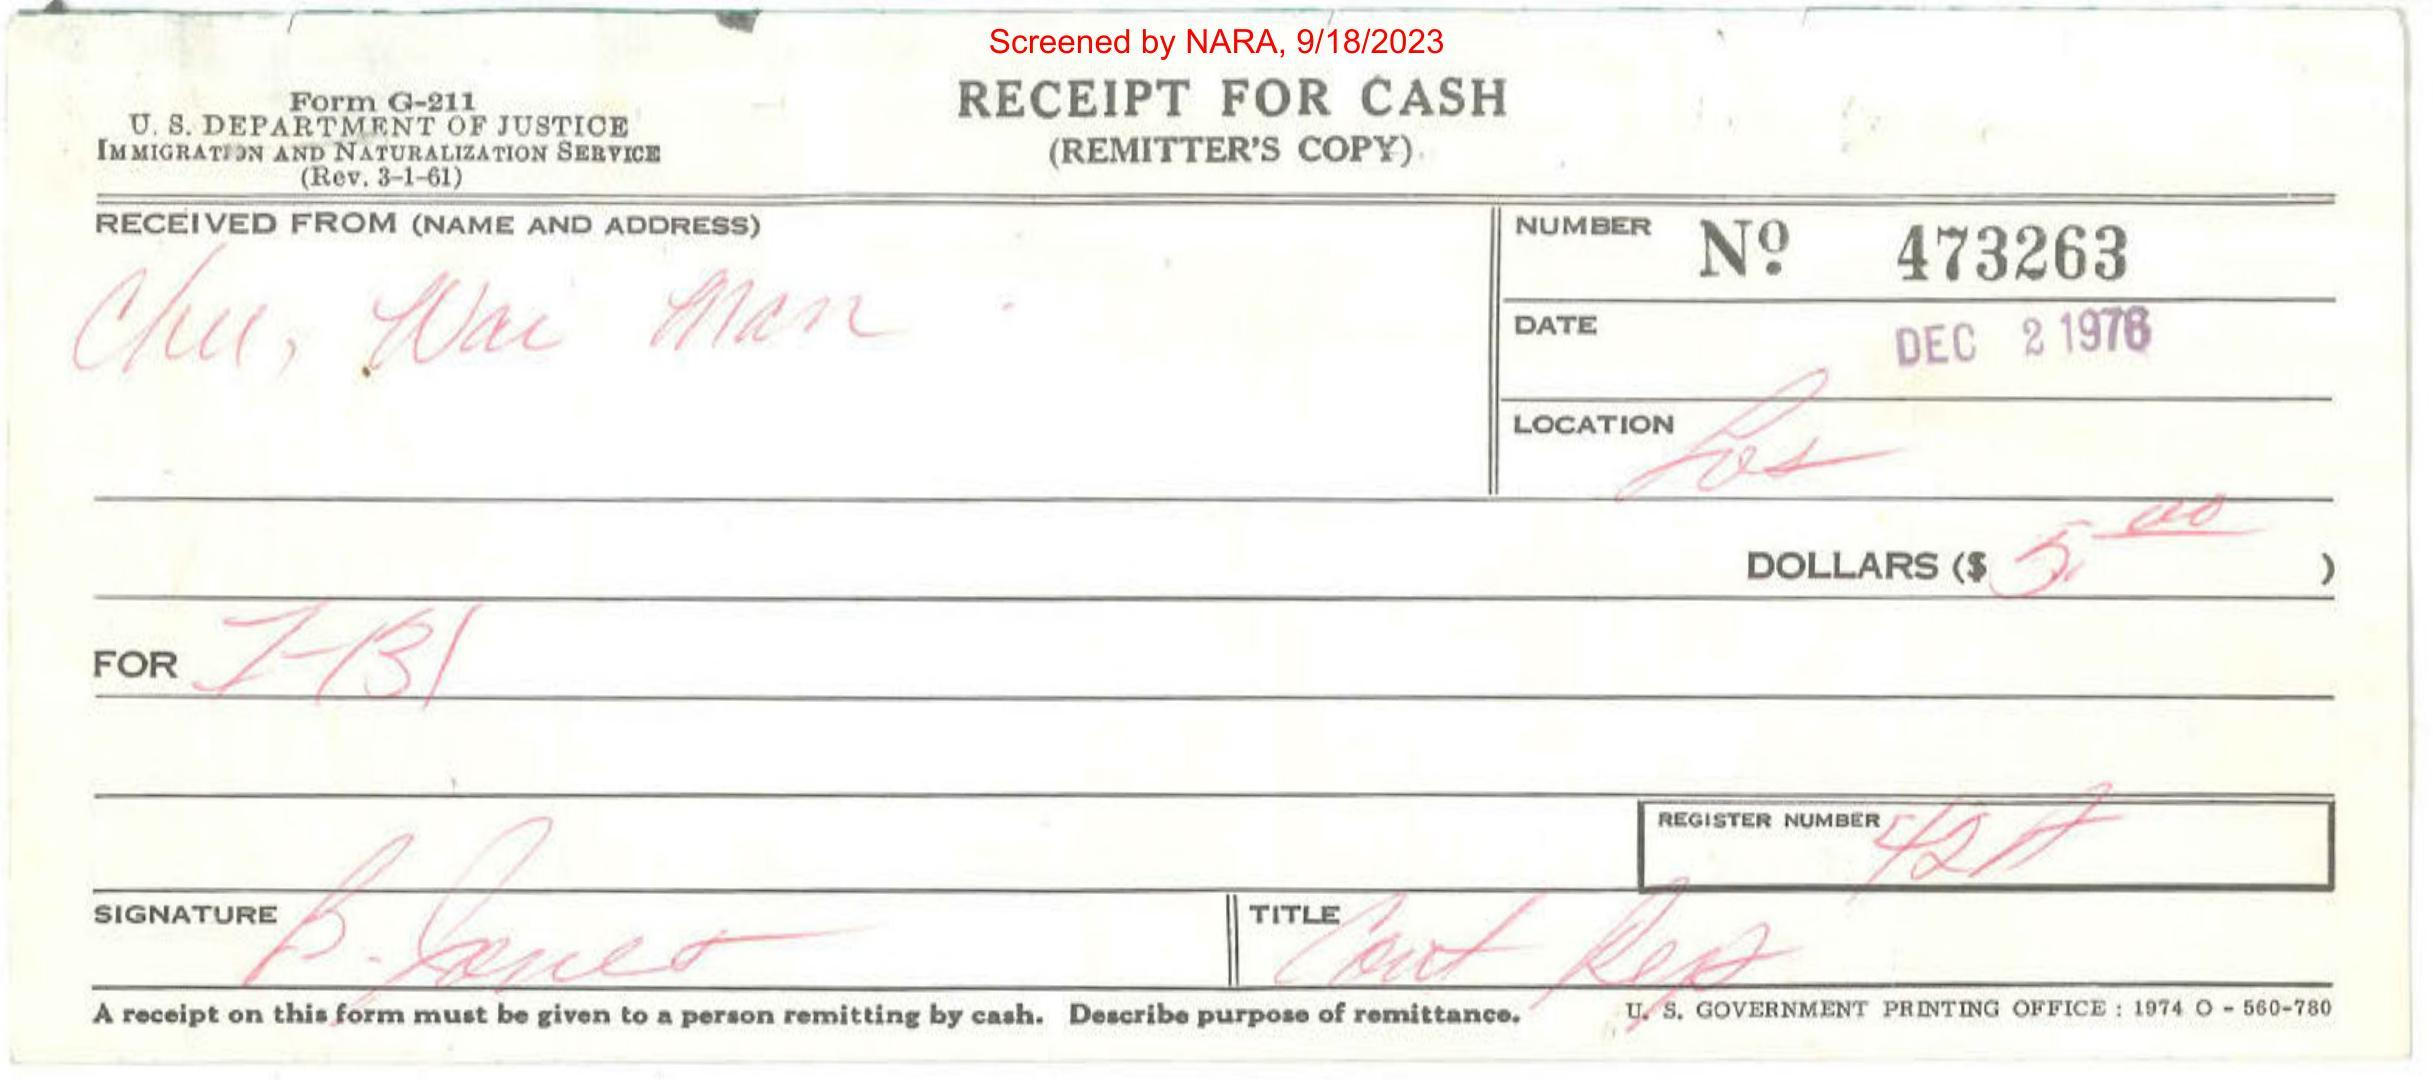 Screened by NARA, 9/18/2023
Form G-211
U. S. DEPARTMENT OF JUSTICE
IMMIGRATION AND NATURALIZATION SERVICE
(Rev. 3-1-61)
RECEIPT FOR CASH
(REMITTER'S COPY)
RECEIVED FROM (NAME AND ADDRESS)
Chu, Wai Man
NUMBER Nº 473263
DATE DEC 2 1976
LOCATION Los
DOLLARS ($ 5.00 )
FOR I-131
REGISTER NUMBER
SIGNATURE B. Jones
TITLE Cont Rep
A receipt on this form must be given to a person remitting by cash. Describe purpose of remittance.
U. S. GOVERNMENT PRINTING OFFICE : 1974 O - 560-780